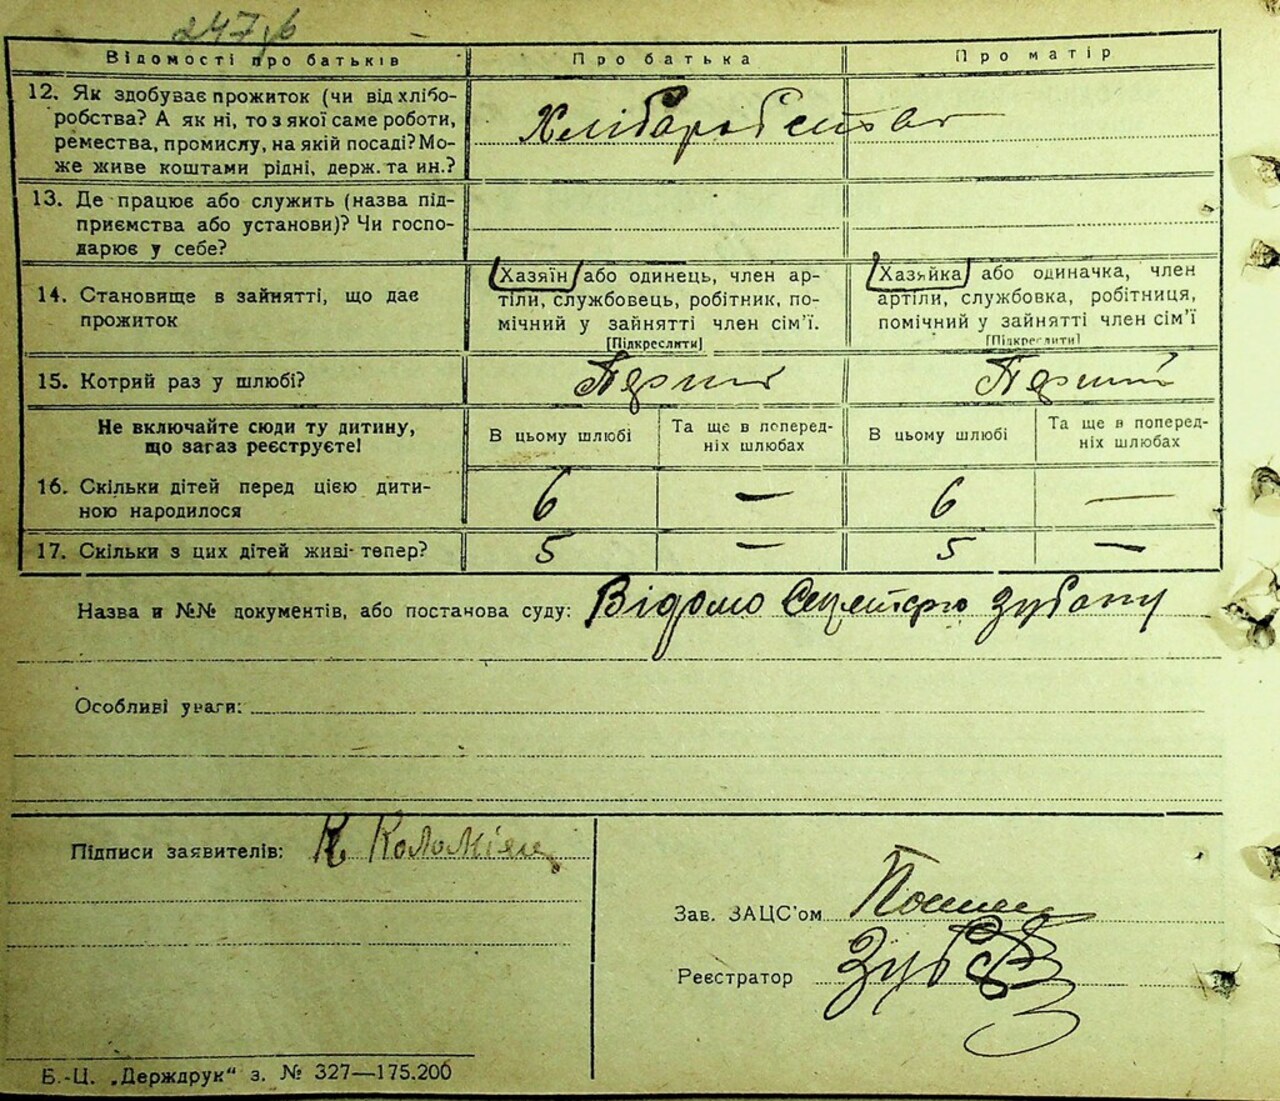 247
Відомості про батьків Про батька Про матір
12. Як здобуває прожиток (чи від хлібо-
робства? А як ні, то з якої саме роботи,
ремества, промислу, на якій посаді? Мо-
же живе коштами рідні, держ. та ин.?
Хліборобство
13. Де працює або служить (назва під-
приємства або установи)? Чи госпо-
дарює у себе?
14. Становище в зайнятті, що дає
прожиток
Хазяїн або одинець, член ар-
тіли, службовець, робітник, по-
мічний у зайнятті член сім'ї.
[Підкреслити]
Хазяйка або одиначка, член
артіли, службовка, робітниця,
помічний у зайнятті член сім'ї
[Підкреслити]
15. Котрий раз у шлюбі? Перший Перший
Не включайте сюди ту дитину,
що загаз реєструєте!
В цьому шлюбі
Та ще в поперед-
ніх шлюбах
В цьому шлюбі
Та ще в поперед-
ніх шлюбах
16. Скільки дітей перед цією дити-
ною народилося
6 — 6 —
17. Скільки з цих дітей живі тепер? 5 — 5 —
Назва и №№ документів, або постанова суду: Відомо Секретарю Зубану
Особливі уваги:
Підписи заявителів: К Коломіец
Зав. ЗАЦС'ом
Реєстратор Зуб
Б.-Ц. „Держдрук" з. № 327—175.200